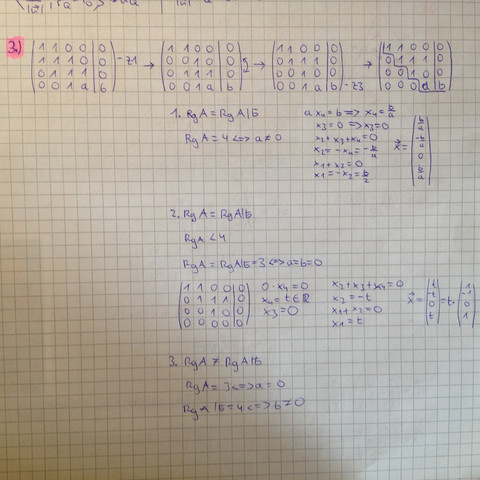 3.)
( 1 1 0 0 | 0 ) ( 1 1 0 0 | 0 ) ( 1 1 0 0 | 0 ) ( 1 1 0 0 | 0 )
( 1 1 1 0 | 0 ) -z1 → ( 0 0 1 0 | 0 ) → ( 0 1 1 1 | 0 ) → ( 0 1 1 1 | 0 )
( 0 1 1 1 | 0 ) ( 0 1 1 1 | 0 ) ( 0 0 1 0 | 0 ) ( 0 0 1 0 | 0 )
( 0 0 1 a | b ) ( 0 0 1 a | b ) ( 0 0 1 a | b ) -z3 ( 0 0 0 a | b )
1. Rg A = Rg A|b
Rg A = 4 <=> a ≠ 0
a x4 = b => x4 = b/a
x3 = 0 => x3 = 0
x2 + x3 + x4 = 0
x2 = -x4 = -b/a
x1 + x2 = 0
x1 = -x2 = b/2
x = ( b/a -b/a 0 b/a )
2. Rg A = Rg A|b
Rg A < 4
Rg A = Rg A|b = 3 <=> a = b = 0
( 1 1 0 0 | 0 )
( 0 1 1 1 | 0 )
( 0 0 1 0 | 0 )
( 0 0 0 0 | 0 )
0 · x4 = 0
x4 = t ∈ R
x3 = 0
x2 + x3 + x4 = 0
x2 = -t
x1 + x2 = 0
x1 = t
x = ( t -t 0 t ) = t · ( 1 -1 0 1 )
3. Rg A ≠ Rg A|b
Rg A = 3 <=> a = 0
Rg A|b = 4 <=> b ≠ 0